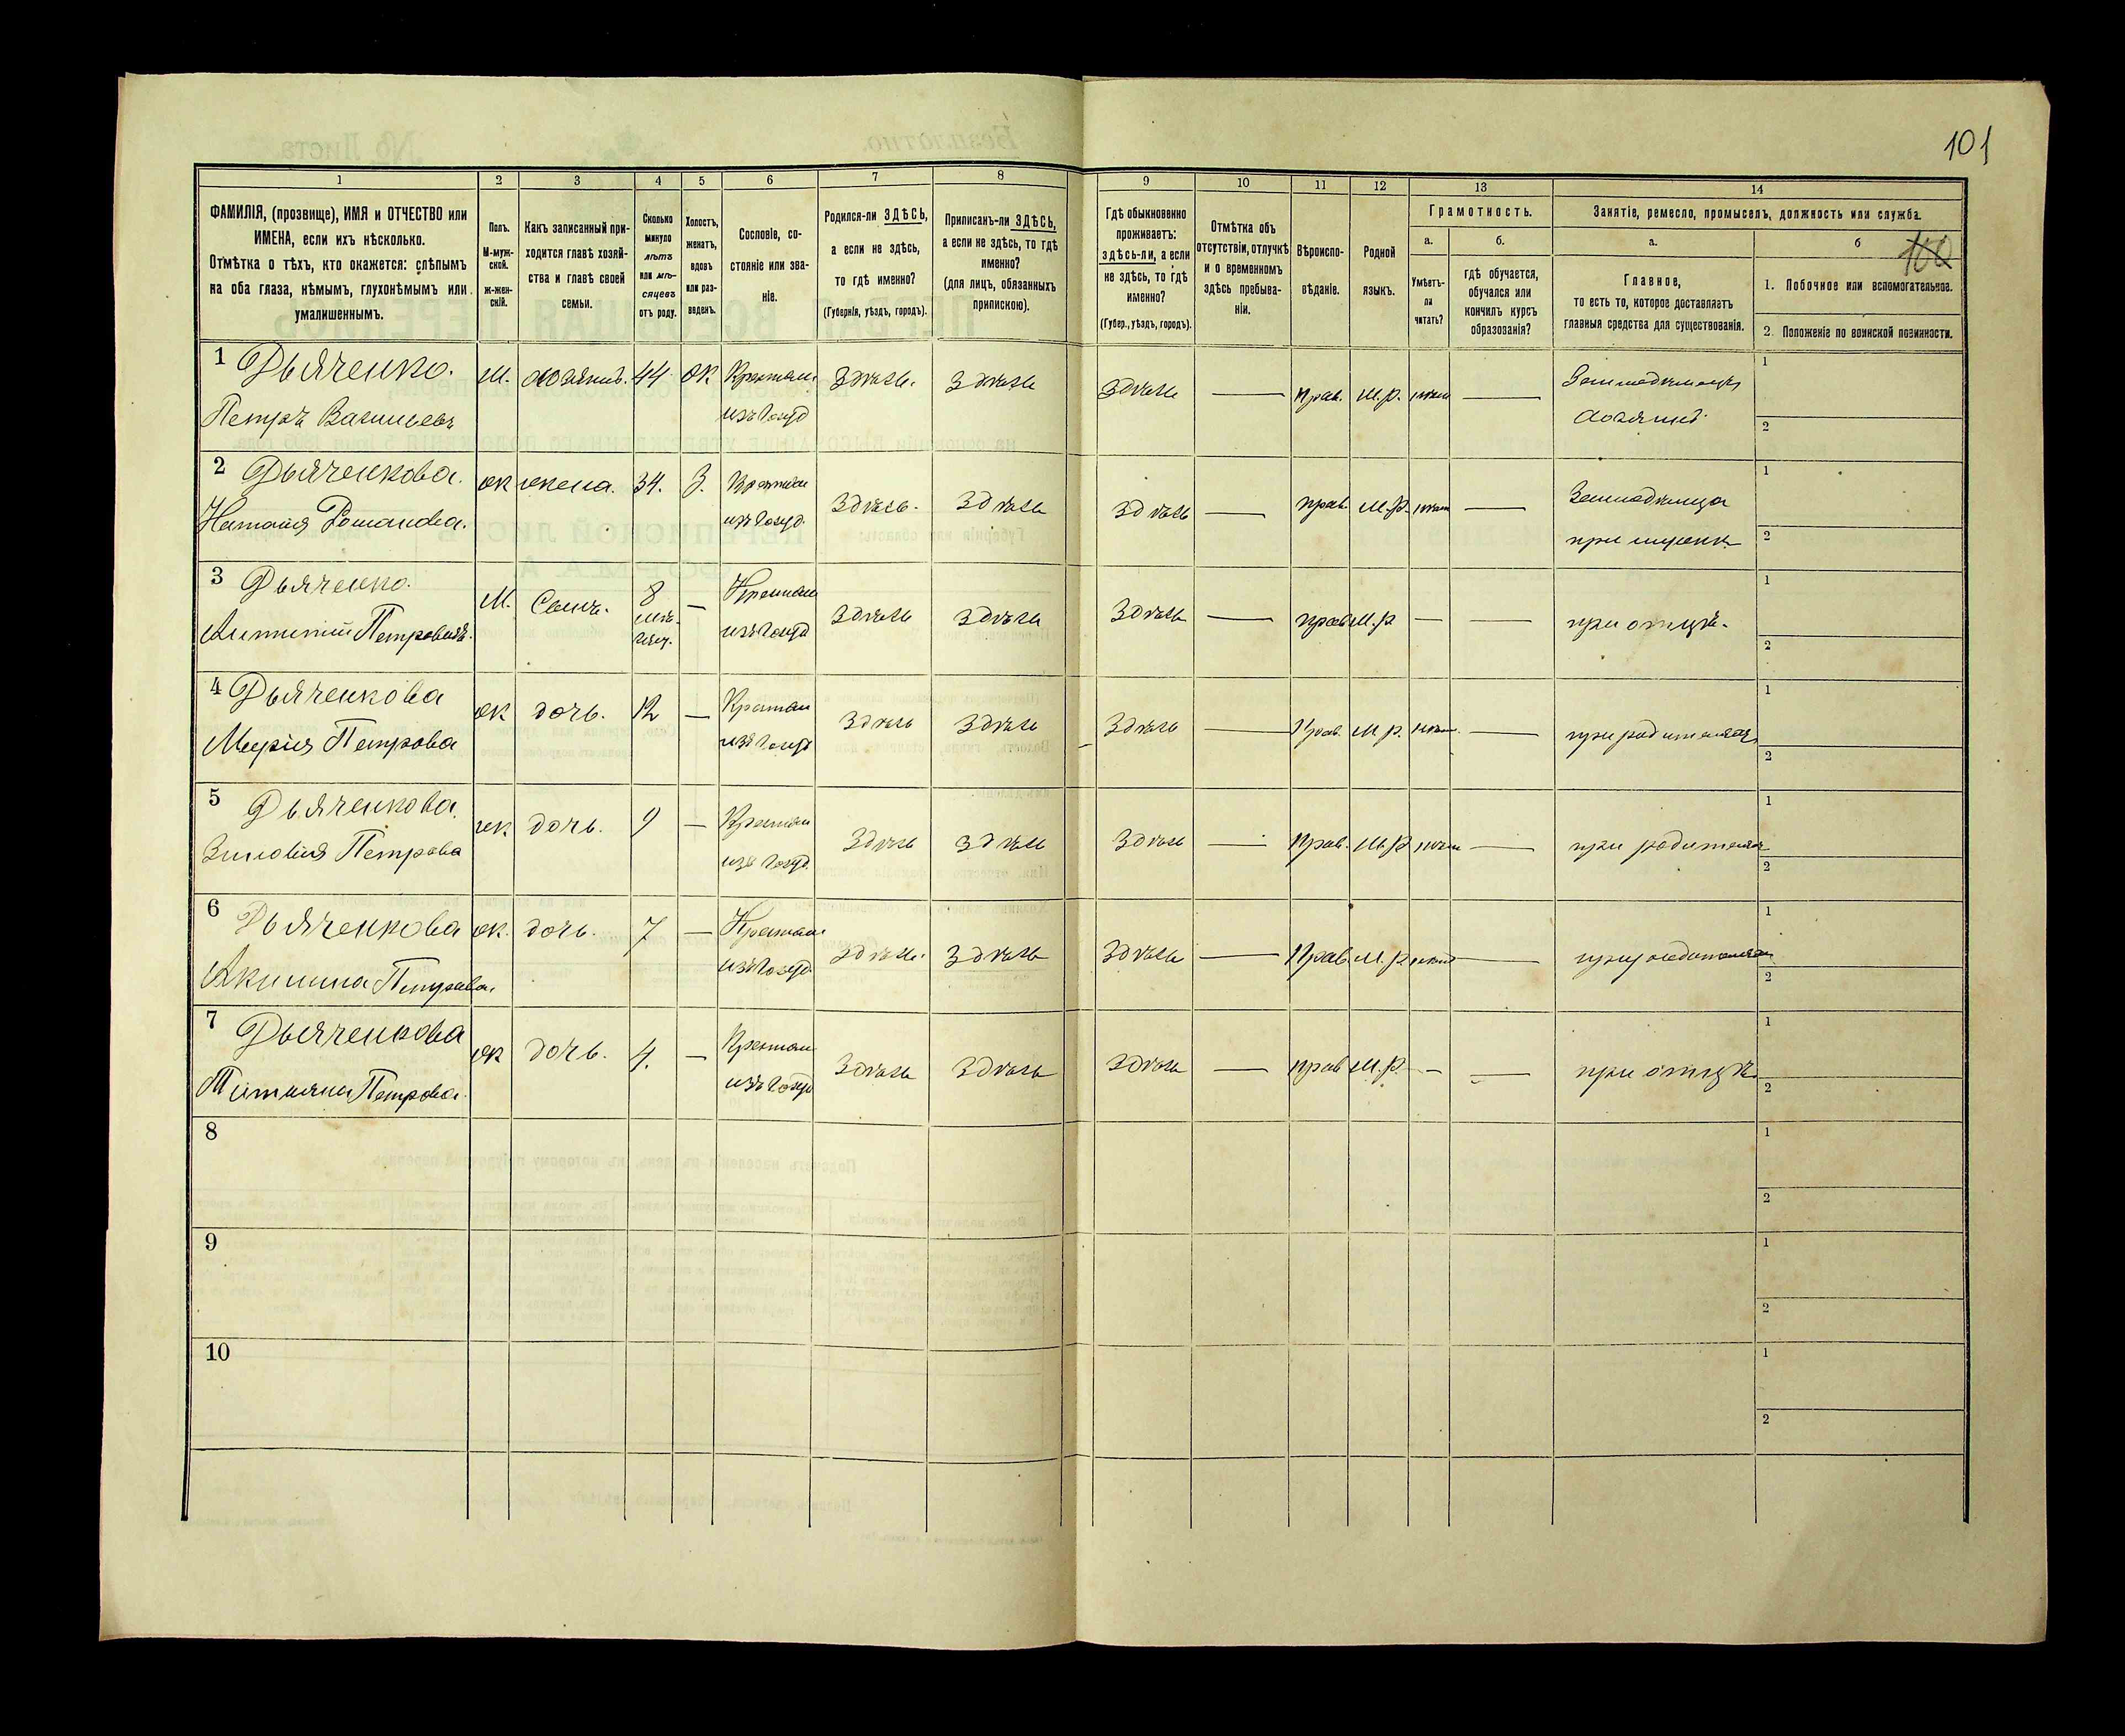 101
1 2 3 4 5 6 7 8 9 10 11 12 13 14
ФАМИЛІЯ, (прозвище), ИМЯ и ОТЧЕСТВО или
ИМЕНА, если ихъ нѣсколько.
Отмѣтка о тѣхъ, кто окажется: слѣпымъ
на оба глаза, нѣмымъ, глухонѣмымъ или
умалишеннымъ.
Полъ.
М-муж-
ской.
ж-жен-
скій.
Какъ записанный при-
ходится главѣ хозяй-
ства и главѣ своей
семьи.
Сколько
минуло
лѣтъ
или мѣ-
сяцевъ
отъ роду.
Холостъ,
женатъ,
вдовъ
или раз-
веденъ.
Сословіе, со-
стояніе или зва-
ніе.
Родился-ли ЗДѢСЬ,
а если не здѣсь,
то гдѣ именно?
(Губернія, уѣздъ, городъ).
Приписанъ-ли ЗДѢСЬ,
а если не здѣсь, то гдѣ
именно?
(для лицъ, обязанныхъ
припискою).
Гдѣ обыкновенно
проживаетъ:
здѣсь-ли, а если
не здѣсь, то гдѣ
именно?
(Губер., уѣздъ, городъ).
Отмѣтка объ
отсутствіи, отлучкѣ
и о временномъ
здѣсь пребыва-
ніи.
Вѣроиспо-
вѣданіе.
Родной
языкъ.
Грамотность.
а.
Умѣетъ-
ли
читать?
б.
гдѣ обучается,
обучался или
кончилъ курсъ
образованія?
Занятіе, ремесло, промыселъ, должность или служба.
а.
Главное,
то есть то, которое доставляетъ
главныя средства для существованія.
б
100
1. Побочное или вспомогательное.
2. Положеніе по воинской повинности.
1 Дьяченко. М. хозяинъ. 44 ж Крестьян. Здѣсь. Здѣсь Здѣсь — Прав. М.р. нѣтъ — Земледѣлецъ 1
Петръ Васильевъ изъ Госуд хозяинъ 2
2 Дьяченкова. ж жена. 34. З. Крестьян Здѣсь. Здѣсь Здѣсь — прав. М.р. нѣтъ — Земледѣлица 1
Наталия Романова. изъ Госуд. при мужѣ 2
3 Дьяченко. М. Сынъ. 8 — Крестьян Здѣсь Здѣсь Здѣсь — прав М.р — — при отцѣ. 1
Петровъ. мѣ- изъ Госуд 2
сяц.
4 Дьяченкова ж дочь. 12 — Крестьян Здѣсь Здѣсь Здѣсь — Прав. М.р. нѣтъ. — при родителяхъ 1
Мария Петрова изъ Госуд 2
5 Дьяченкова. ж дочь. 9 — Крестьян Здѣсь Здѣсь Здѣсь — Прав. М.р нѣтъ — при родителях 1
Зиновия Петрова изъ Госуд. 2
6 Дьяченкова ж. дочь. 7 — Крестьян. Здѣсь. Здѣсь Здѣсь — Прав. М.р. нѣтъ — при родителях 1
Акилина Петрова. изъ Госуд. 2
7 Дьяченкова ж дочь. 4. — Крестьян Здѣсь Здѣсь Здѣсь — прав М.р. — — при отцѣ. 1
Татьяна Петрова. изъ Госуд 2
8 1
2
9 1
2
10 1
2